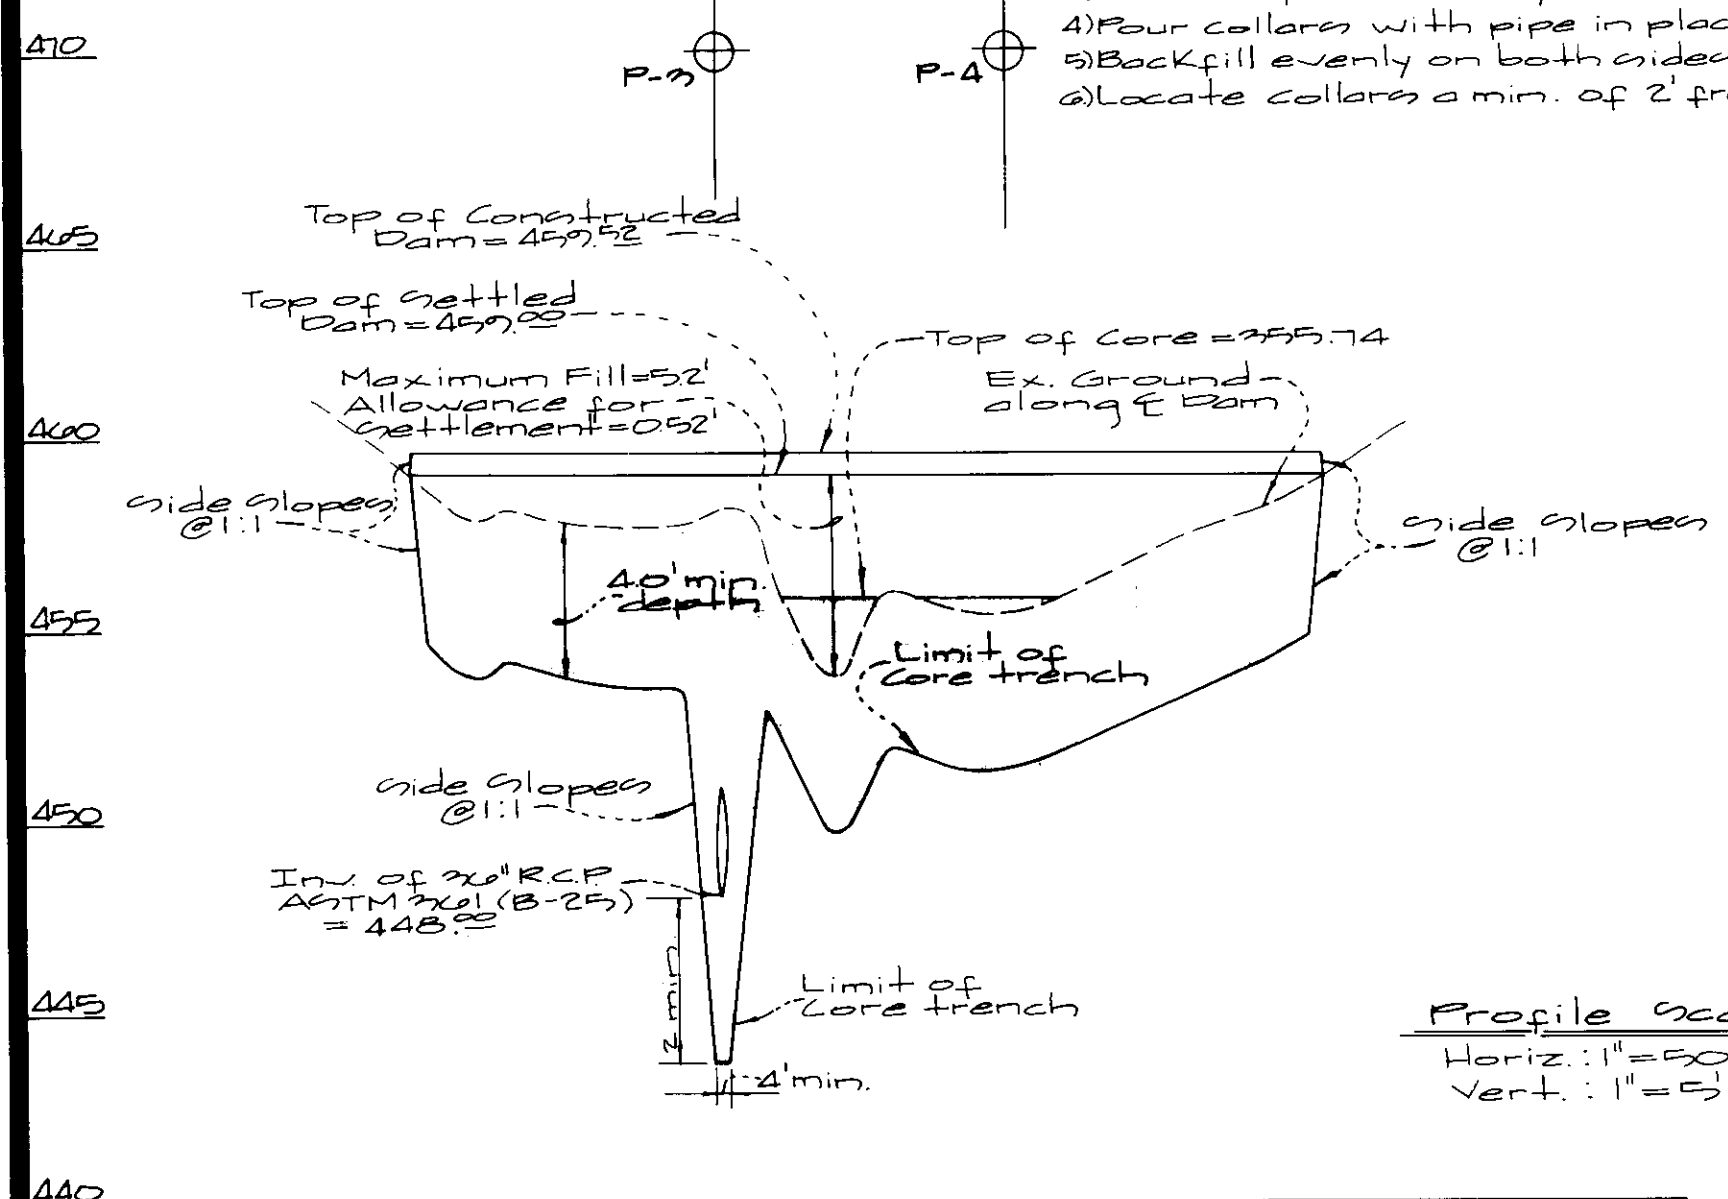 4)Pour collars with pipe in plac
5)Backfill evenly on both sides
6)Locate collars a min. of 2' fr
470
P-3
P-4
465
Top of Constructed
Dam = 459.52
Top of Settled
Dam = 459.00
Top of Core = 355.74
Maximum Fill=5.2'
Allowance for
Settlement=0.52'
Ex. Ground
along ℄ Dam
460
Side Slopes
@ 1:1
Side Slopes
@ 1:1
4.0' min.
depth
455
Limit of
Core trench
Side Slopes
@ 1:1
450
Inv. of 36" R.C.P.
ASTM 361 (B-25)
= 448.00
2' min.
Limit of
Core trench
445
4' min.
Profile Sca
Horiz. : 1"=50
Vert. : 1"=5'
440